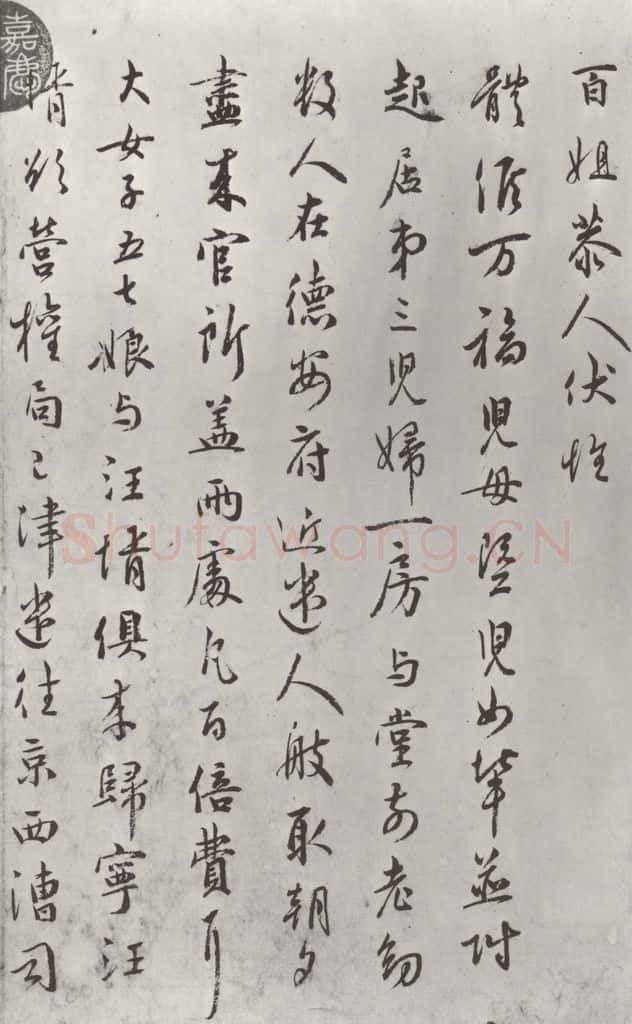 百姐恭人伏惟
體候万福兒母暨兒女輩並附
起居弟三兒婦一房与堂前老幼
数人在德安府近遣人般取朝夕
盡来官所盖兩處凡百倍費耳
大女子五七娘与汪壻俱来歸寧汪
壻欲營榷局已津遣往京西漕司
嘉慶
Shufawang.CN